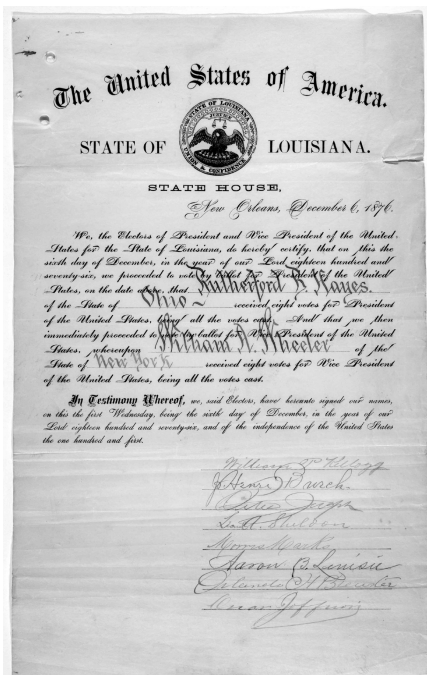 The United States of America.
STATE OF LOUISIANA
JUSTICE
UNION & CONFIDENCE
STATE OF LOUISIANA.
STATE HOUSE,
New Orleans, December 6, 1876.
We, the Electors of President and Vice President of the United
States for the State of Louisiana, do hereby certify, that on this the
sixth day of December, in the year of our Lord eighteen hundred and
seventy-six, we proceeded to vote by ballot for President of the United
States, on the date above, that Rutherford B. Hayes
of the State of Ohio received eight votes for President
of the United States, being all the votes cast. And that we then
immediately proceeded to vote by ballot for Vice President of the United
States, whereupon William A. Wheeler of the
State of New York received eight votes for Vice President
of the United States, being all the votes cast.
In Testimony Whereof, we, said Electors, have hereunto signed our names,
on this the first Wednesday, being the sixth day of December, in the year of our
Lord eighteen hundred and seventy-six, and of the independence of the United States
the one hundred and first.
William P. Kellogg
J. Henri Burch
Peter Joseph
L. A. Sheldon
Morris Marks
Aaron B. Levisee
Orlando H. Brewster
Oscar Joffrion